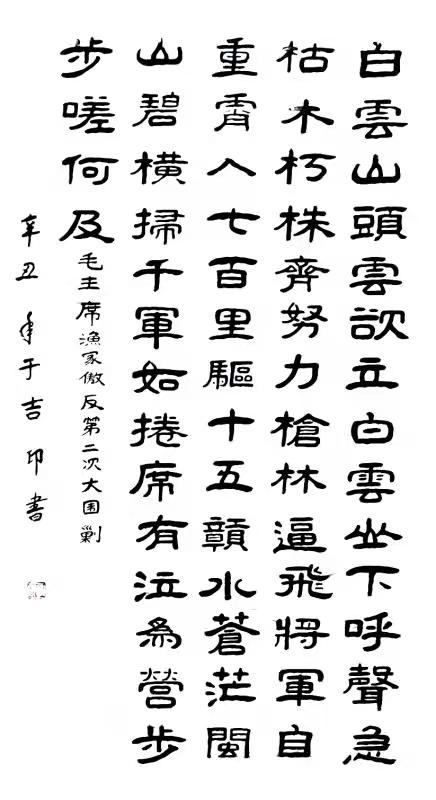 白雲山頭雲欲立白雲山下呼聲急
枯木朽株齊努力槍林逼飛將軍自
重霄入七百里驅十五贛水蒼茫閩
山碧橫掃千軍如捲席有泣為營步
步嗟何及毛主席漁家傲反第二次大围剿
辛丑年于吉印書